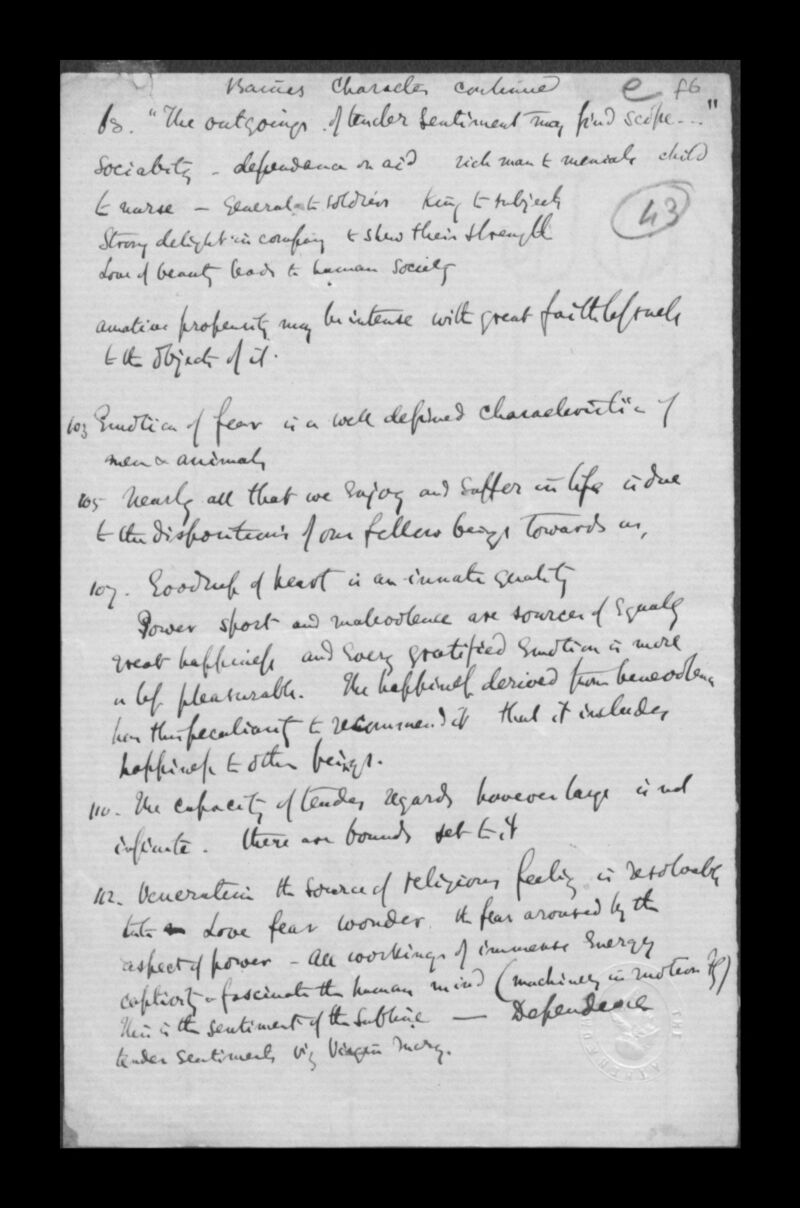 Baines Character continued e f6
63. "The outgoings of tender sentiment may find scope --- "
Sociability - dependence on aid rich man to menials child
to nurse - General to soldiers King to subjects
43
Strong delight in company to shew their strength
Love of beauty leads to human society
amative propensity may be intense with great faithlessness
to the objects of it.
103 Emotion of fear is a well defined characteristic of
men & animals
105 Nearly all that we enjoy and suffer in life is due
to the dispositions of our fellow beings towards us,
107. Goodness of heart is an innate quality
Power sport and malevolence are sources of equally
great happiness and every gratified emotion is more
or less pleasurable. The happiness derived from benevolence
has this peculiarity to recommend it that it includes
happiness to other beings.
110. The capacity of tender regards however large is not
infinite. there are bounds set to it
112. Veneration the source of religious feeling is resolvable
into Love fear wonder. the fear aroused by the
aspect of power - all workings of immense energy
captivity & fascinate the human mind (machinery in motion FG)
This is the sentiment of the sublime — Dependence
tender sentiments viz Virgin Mary.